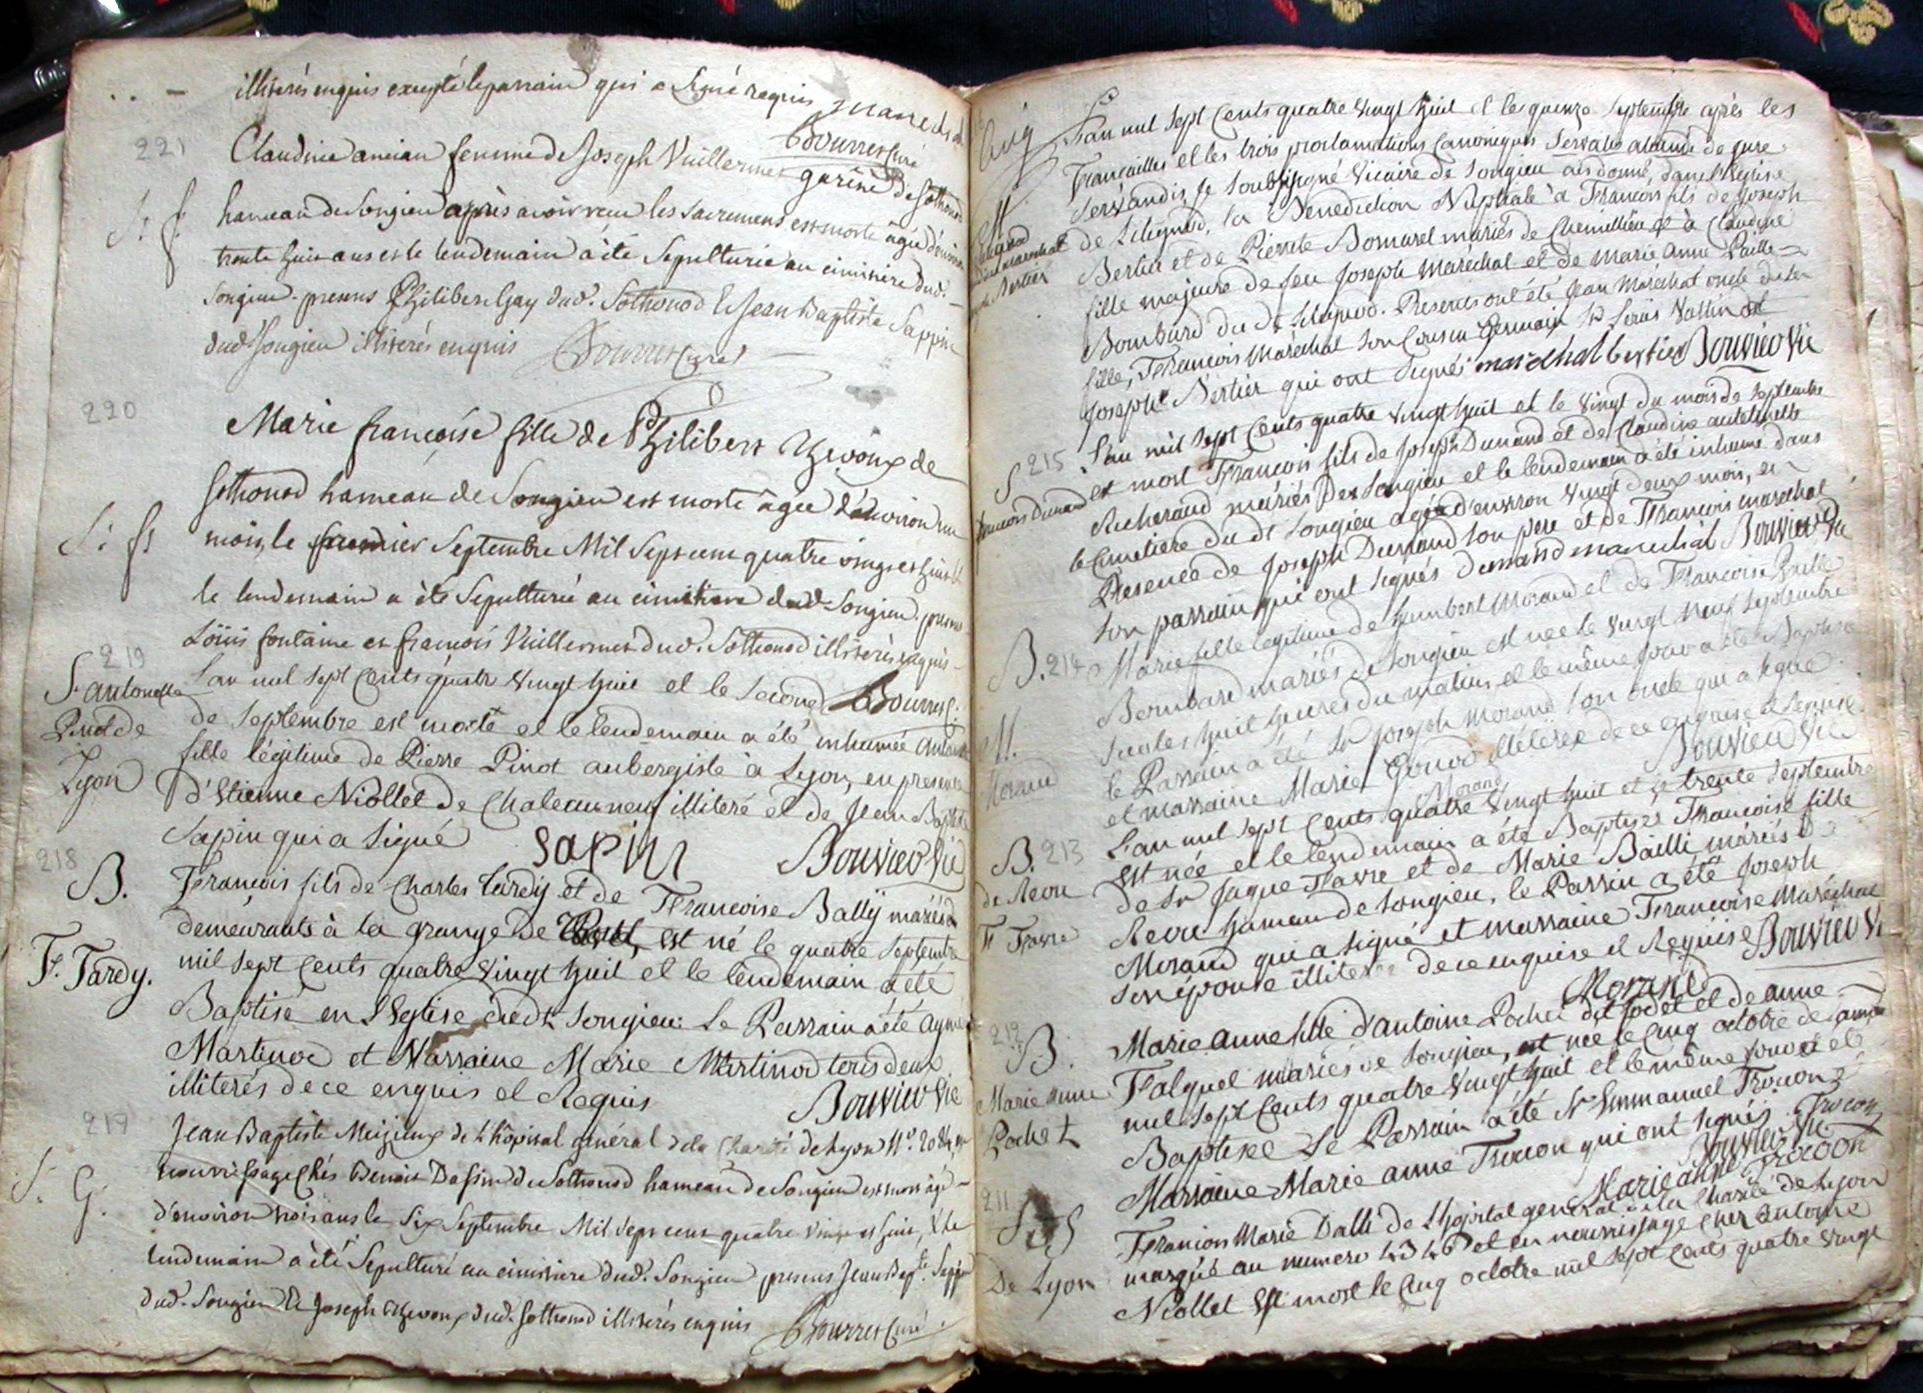 illiterés enquis excepté le parrain qui a signé requis
Bourret curé
221
Claudine ancian femme de Joseph Vuillermet de Sothonod
hameau de Songieu après avoir reçu les sacremens est morte agée d'environ
trente huit ans et le lendemain a été sepulturée au cimitiere dud.
Songieu. presens Philibert Gay dud. Sothonod & Jean Baptiste Sappin
dud. Songieu illiterés enquis Bourret curé
220
Marie françoise fille de Philibert
Sothonod hameau de Songieu est morte agée d'environ un
S. fs
mois, le premier Septembre Mil Sept cent quatre vingt et huit &
le lendemain a été Sepulturée au cimitiere dud. Songieu. presens
Loüis fontaine et françois Vuillermet dud. Sothonod illiterés enquis
219
S. antonette
Pinot de
Lyon
L'an mil sept cents quatre vingt huit et le second Bourret c.
de Septembre est morte et le lendemain a été inhumée
fille légitime de Pierre Pinot aubergiste à Lyon, en presence
d'Etienne Niollet de Chateauneuf illiteré et de Jean Baptiste
Sapin qui a signé Sapin Bouvier Vic
218
B.
F. Tardy.
François fils de Charles tardy et de Françoise Bally mariés
demeurants à la grange de est né le quatre septembre
mil sept cents quatre vingt huit et le lendemain a été
Baptisé en l'Eglise dudt Songieu: Le Parrain a été aymé
Martinod et Marraine Marie Martinod tous deux
illiterés de ce enquis et Requis Bouvier Vic
217
S. G.
Jean Baptiste Meizieux de L'hôpital général de la Charité de Lyon
nourrissage chés Benoit Dassin de Sothonod hameau de Songieu est mort agé
d'environ trois ans le Six Septembre Mil sept cent quatre vingt et huit, & le
lendemain a été Sepulturé au cimitiere dud. Songieu presens Jean Bapt.te Sappin
dud. Songieu & Joseph dud. Sothonod illiterés enquis Bourret curé
L'an mil sept cents quatre vingt huit et le quinze Septembre après les
Fiançailles et les trois proclamations Canoniques servatis aliunde de jure
servandis, Je soubsigné Vicaire de Songieu ais donné, dans l'Eglise
de Lilignod, la Benediction Nuptiale à François fils de Joseph
Bertier et de Pierrete Bomurel mariés de Chemillieu et à Claudine
fille majeure de feu Joseph Marechal et de Marie Anne Paille
Bombard du dt Lilignod. Presents ont été Jean Maréchal oncle de la
fille, François Maréchal son Cousin Germain
Joseph Bertier qui ont signés marechal bertier Bouvier Vic
S 215
françois Dunand
L'an mil sept cents quatre vingt huit et le vingt du mois de septembre
est mort François fils de Joseph Dunand et de Claudine
Richerand mariés De Songieu et le lendemain a été inhumé dans
le Cimetiere du dt Songieu agé d'environ vingt deux mois, en
Presence de Joseph Dunand son pere et de François marechal
son parrain qui ont signés Dunand marechal Bouvier Vic
B. 214
M.
Morand
Marie fille legitime de humbert Morand et de Francoise Paille
Bombard mariés de Songieu est née le vingt neuf septembre
sur les huit heures du matin, et le même jour a été Baptisée
le Parrain a été Sr Joseph Morand son oncle qui a signé
et marraine Marie Gonod illiterée de ce enquise et Requise
Morand Bouvier Vic
B. 213
de Reou
F Favre
L'an mil sept cents quatre vingt huit et le trente septembre
est née et le lendemain a été Baptisée Françoise fille
de Sr Jaque Favre et de Marie Bailli mariés de
Reou hameau de Songieu, le Parrin a été Joseph
Morand qui a signé et marraine Françoise Maréchal
son épouse illiterée de ce enquise et Requise Bouvier Vic
Morand
212
B.
Marie anne
Rochet
Marie anne fille d'antoine Rochet dit Jodet et de anne
Falquet mariés de Songieu, est née le Cinq octobre de l'année
mil sept Cents quatre vingt huit et le même jour a été
Baptisée Le Parrain a été Sr Emmanuel Trocon &
Marraine Marie anne Trocon qui ont signés. Trocon
Bouvier Vic
Marie anne Trocon
211
De Lyon
François Marie Dalli de l'hopital general de la Charité de Lyon
marqué au numero 4346 et en nourrissage chez antoine
Niollet est mort le Cinq octobre mil sept cents quatre vingt